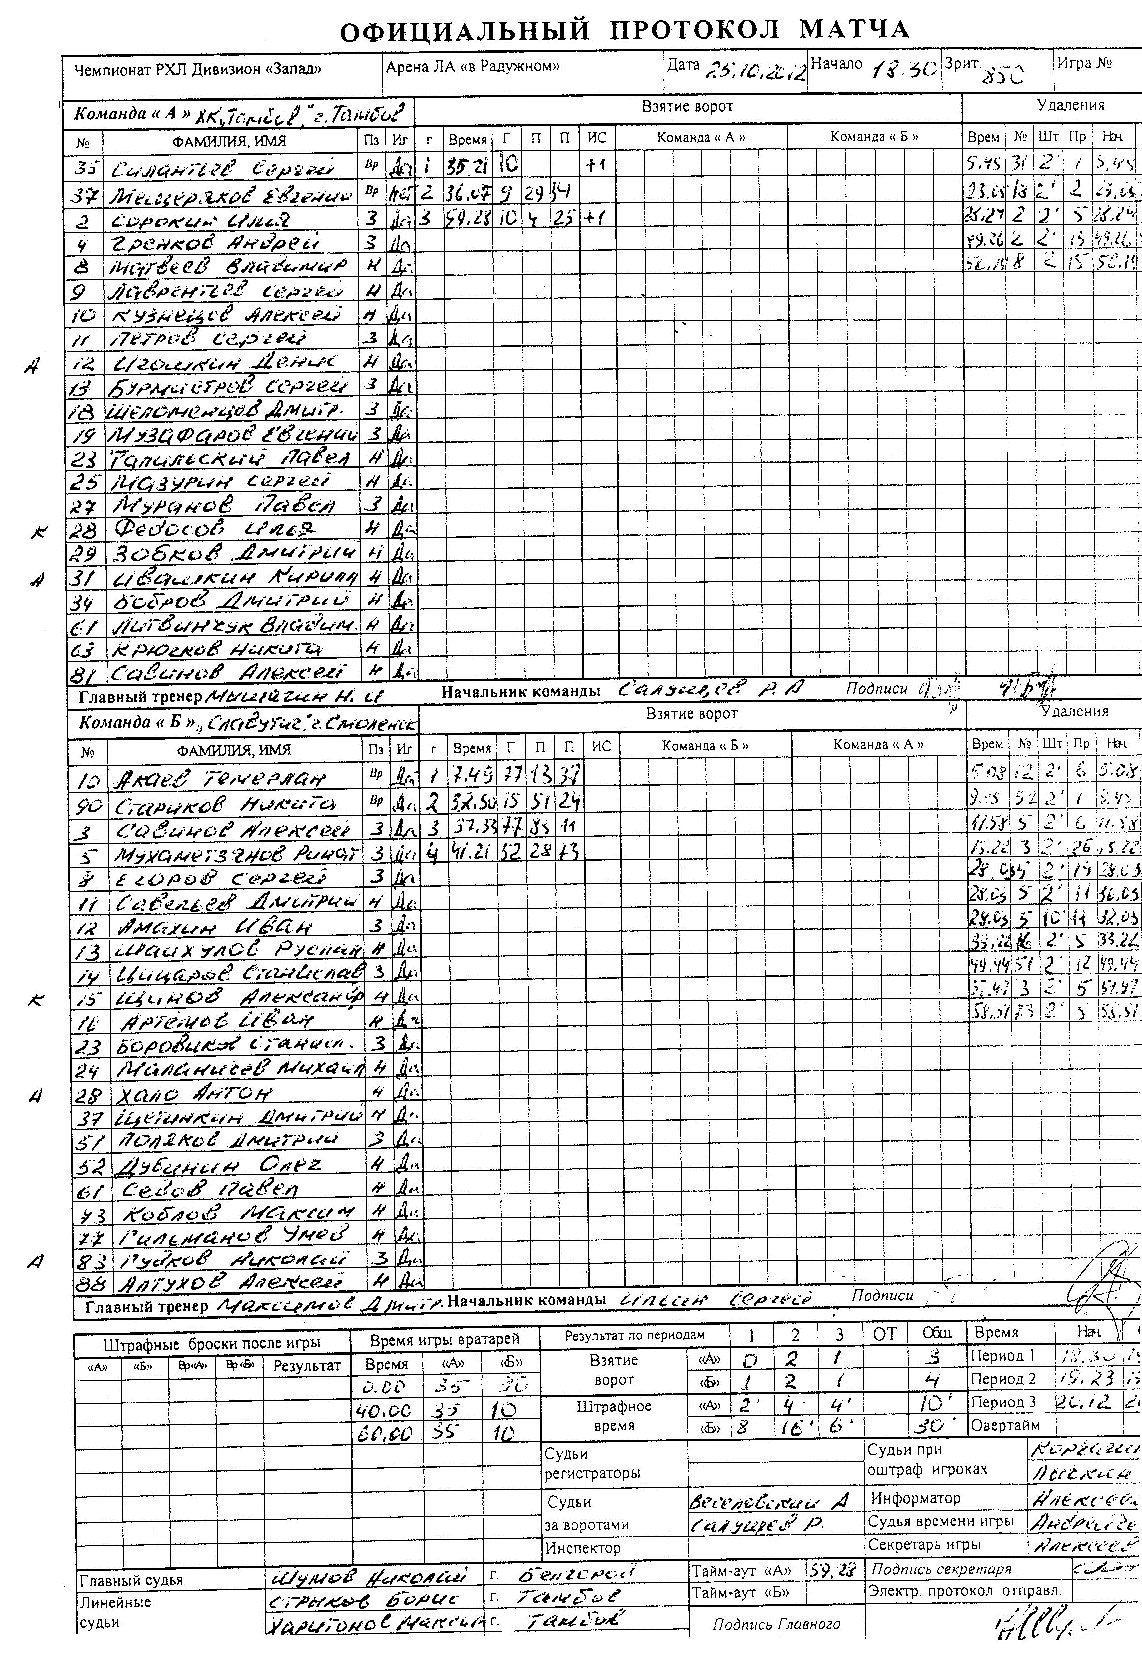 ОФИЦИАЛЬНЫЙ ПРОТОКОЛ МАТЧА
Чемпионат РХЛ Дивизион «Запад» Арена ЛА «в Радужном» Дата 25.10.2012 Начало 18.30 Зрит. 850 Игра №
Команда « А » ХК „Тамбов" г. Тамбов Взятие ворот Удаления
№ ФАМИЛИЯ, ИМЯ Пз Иг г Время Г П П ИС Команда « А » Команда « Б » Врем № Шт Пр Нач
35 Силантьев Сергей Вр Да 1 35.21 10 +1 5.45 31 2' 1 5.45
37 Мещеряков Евгений Вр Нет 2 36.07 9 29 34 23.05 18 2' 2 23.05
2 Сорокин Илья З Да 3 59.28 10 4 25 +1 28.24 2 2' 5 28.24
4 Гренков Андрей З Да 49.26 2 2' 13 49.26
8 Матвеев Владимир Н Да 52.19 8 2 15 52.19
9 Лаврентьев Сергей Н Да
10 Кузнецов Алексей Н Да
11 Петров Сергей З Да
А 12 Игошкин Денис Н Да
13 Бурмистров Сергей З Да
18 Шеломенцов Дмитр. З Да
19 Музафаров Евгений З Да
23 Тапильский Павел Н Да
25 Мазурин Сергей Н Да
27 Муранов Павел З Да
К 28 Федосов Илья Н Да
29 Зобков Дмитрий Н Да
А 31 Ивашкин Кирилл Н Да
34 Бобров Дмитрий Н Да
61 Литвинчук Владим. Н Да
63 Крючков Никита Н Да
81 Савинов Алексей Н Да
Главный тренер Мышагин Н. И Начальник команды Р. А Подписи
Команда « Б » „Славутич" г. Смоленск Взятие ворот Удаления
№ ФАМИЛИЯ, ИМЯ Пз Иг г Время Г П П ИС Команда « Б » Команда « А » Врем № Шт Пр Нач
10 Акаев Темерлан Вр Да 1 7.49 77 13 37 5.08 12 2' 6 5.08
90 Стариков Никита Вр Да 2 32.50 15 51 24 52 2' 1
3 Савинов Алексей З Да 3 37.33 77 83 11 11.58 5 2' 6 11.58
5 Мухаметзянов Ринат З Да 4 41.21 52 28 73 15.22 3 2' 26 15.22
Егоров Сергей З Да 28.03 5 2' 28.03
11 Савельев Дмитрий Н Да 28.03 5 2' 11 30.03
12 Амахин Иван З Да 28.03 5 10 11 32.03
13 Шайхулов Руслан Н Да 33.22 16 2' 5 33.22
14 Цицаров Станислав З Да 49.44 51 2' 12 49.44
К 15 Щинов Александр Н Да 3 2' 5
16 Артемов Иван Н Да 58.51 73 2' 5 58.51
23 Боровиков Станисл. З Да
24 Маланичев Михаил Н Да
А 28 Хало Антон Н Да
37 Щетинкин Дмитрий Н Да
51 Поляков Дмитрий З Да
52 Дубинин Олег Н Да
61 Седов Павел Н Да
73 Коблов Максим Н Да
77 Гильманов Н Да
А 83 Гудков Николай З Да
88 Алтухов Алексей Н Да
Главный тренер Максимов Дмитр. Начальник команды Ильин Сергей Подписи
Штрафные броски после игры Время игры вратарей Результат по периодам 1 2 3 ОТ Общ Время Нач
«А» «Б» Вр«А» Вр«Б» Результат Время «А» «Б» Взятие ворот «А» 0 2 1 3 Период 1 18.30
0.00 35 90 «Б» 1 2 1 4 Период 2 19.23
40.00 35 10 Штрафное время «А» 2' 4' 4' 10' Период 3 20.12
60.00 35 10 «Б» 8 16' 6' 30' Овертайм
Судьи регистраторы Судьи при оштраф игроках
Судьи за воротами Веселовский А Информатор
Р. Судья времени игры
Инспектор Секретарь игры Алексеев
Главный судья Шумов Николай г. Белгород Тайм-аут «А» 59.23 Подпись секретаря
Линейные судьи Стрыков Борис г. Тамбов Тайм-аут «Б» Электр. протокол отправл.
Харитонов Максим г. Тамбов Подпись Главного